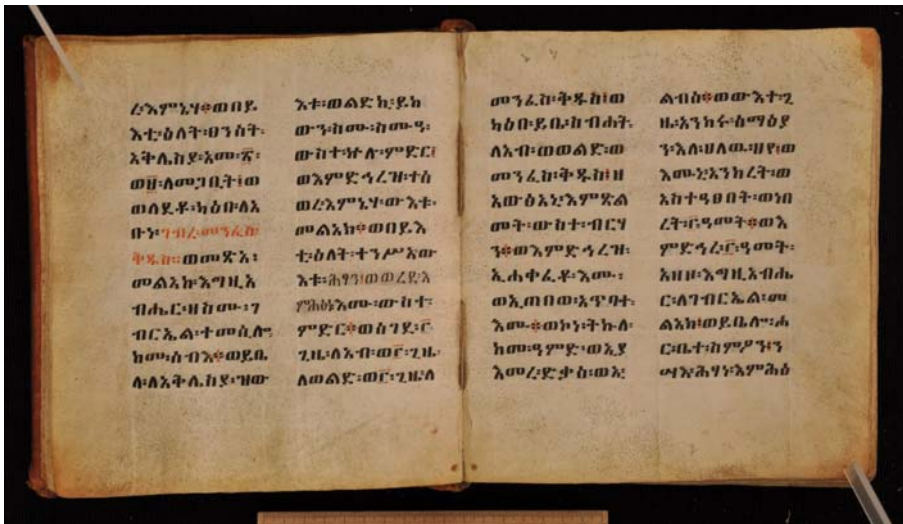 ረ፡እምኔሃ፨ወበይ
እቲ፡ዕለት፡ፀንስት፡
አቅሌስያ፡አመ፡፳፡
ወ፱፡ለመጋቢት፤ወ
ወለደቶ፡ካዕበ፡ለአ
ቡነ፡ገብረ፡መንፈስ፡
ቅዱስ፡፡ወመጽአ፡
መልአከ፡እግዚአ
ብሔር፡ዘስሙ፡ገ
ብርኤል፡ተመሲሎ፡
ከመ፡ሰብእ፨ወይቤ
ላ፡ለአቅሌስያ፡ዝው
እቱ፡ወልድኪ፡ይከ
ውን፡ከመ፡ከሙዓ፡
ውስተ፡ኵሉ፡ምድር፤
ወእምድኅረዝ፡ተሰ
ወረ፡እምኔሃ፡ውእቱ፡
መልአክ፨ወበይእ
ቲ፡ዕለት፡ተንሥአ፡ው
እቱ፡ሕፃን፤ወወረደ፡እ
ምሕፅነ፡እሙ፡ውስተ፡
ምድር፨ወሰገደ፡፫
ጊዜ፡ለአብ፡ወ፫፡ጊዜ፡
ለወልድ፡ወ፫፡ጊዜ፡ለ
መንፈስ፡ቅዱስ፤ወ
ካዕበ፡ይቤ፡ስብሐት፡
ለአብ፡ወወልድ፡ወ
መንፈስ፡ቅዱስ፤ዘ
አውፅአኒ፡እምጽል
መት፡ውስተ፡ብርሃ
ን፨ወእምድኅረዝ፡
ኢሐቀፈቶ፡እሙ፡
ወኢጠበወ፡አጥባተ፡
እሙ፨ወኮነ፡ትኩለ፡
ከመ፡ዓምድ፡ወኢያ
እመረ፡ድቃስ፡ወአ
ልብሰ፨ወውእተ፡ጊ
ዜ፡አንከሩ፡ሰማዕያ
ን፡እለ፡ሀለዉ፡ህየ፤ወ
እሙኒ፡አንከረት፡ወ
አስተዓፀበት፡ወነበ
ረት፡፫፡ዓመት፨ወእ
ምድኅረ፡፫፡ዓመት፡
አዘዞ፡እግዚአብሔ
ር፡ለገብርኤል፡መ
ልአክ፤ወይቤሎ፡ሖ
ር፡ቤተ፡ስምዖን፡ን
ሣእ፡ሕፃነ፡እምሕፅ